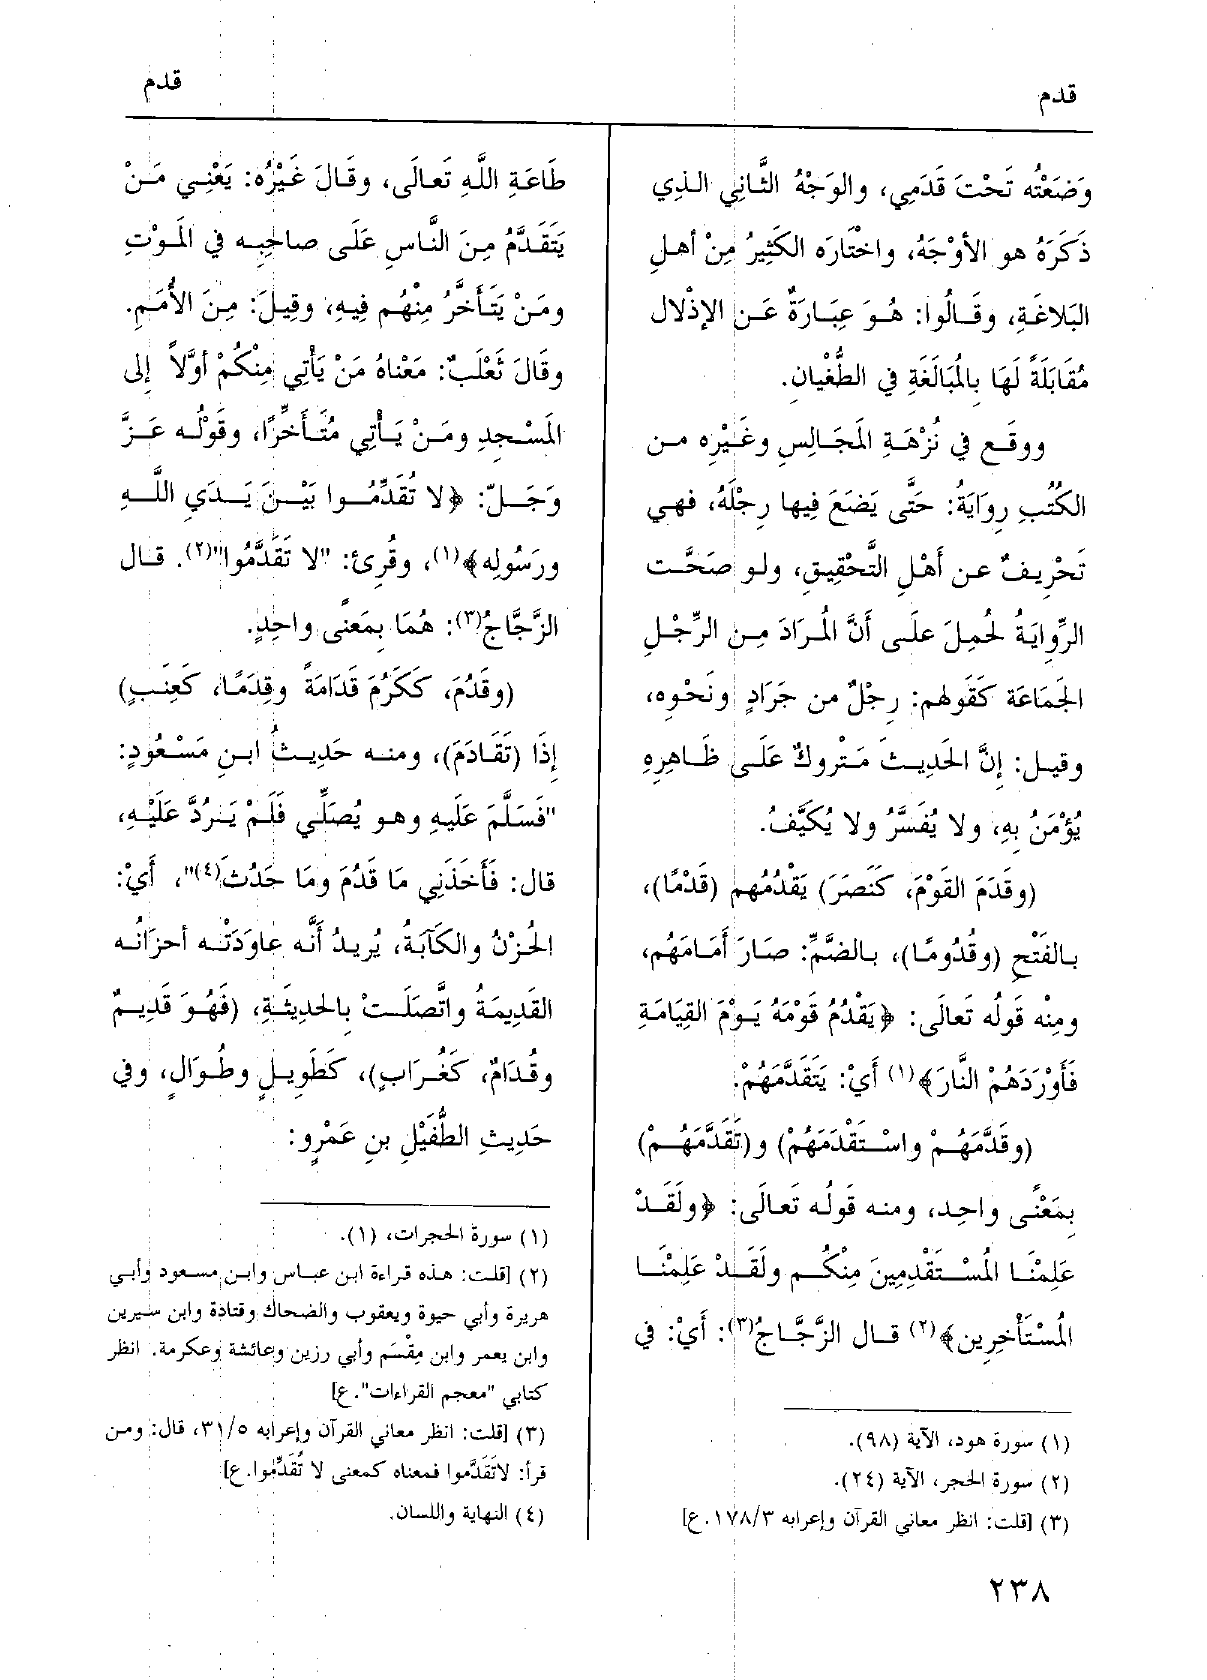 قدم
قدم
وَضَعْتُه تَحْتَ قَدَمِي، والوَجْهُ الثَّانِي الذِي
ذَكَرَهُ هو الأوْجَهُ، واخْتَارَه الكَثِيرُ مِنْ أهلِ
البَلاغَةِ، وقَالُوا: هُوَ عِبَارَةٌ عَنِ الإِذْلال
مُقَابَلَةً لَهَا بِالمُبَالَغَةِ في الطُّغْيانِ.
ووقَع في نُزْهَةِ المَجَالِسِ وغَيْرِه من
الكُتُبِ رِوايَةُ: حَتَّى يَضَعَ فِيها رِجْلَهُ، فهي
تَحْرِيفٌ عن أَهْلِ التَّحْقِيقِ، ولو صَحَّت
الرِّوايَةُ لحُمِلَ علَى أَنَّ المُرَادَ مِن الرِّجْلِ
الجَمَاعَة كَقَولهم: رِجْلٌ من جَرَادٍ ونَحْوِه،
وقيل: إنَّ الحَدِيثَ مَتْروكٌ عَلَى ظَاهِرِهِ
يُؤْمَنُ بِهِ، ولا يُفَسَّرُ ولا يُكَيَّفُ.
(وقَدَمَ القَوْمَ، كَنَصَرَ) يَقْدُمُهم (قَدْمًا)،
بالفَتْحِ (وقُدُومًا)، بالضَّمِّ: صَارَ أَمَامَهُم،
ومِنْه قَولُه تَعَالَى: ﴿يَقْدُمُ قَوْمَهُ يَوْمَ القِيَامَةِ
فَأَوْرَدَهُمْ النَّارَ﴾(١) أَيْ: يَتَقَدَّمَهُمْ.
(وقَدَّمَهُمْ واسْتَقْدَمَهُمْ) و(تَقَدَّمَهُمْ)
بِمَعْنًى واحِد، ومنه قَولُه تَعالَى: ﴿ولَقَدْ
عَلِمْنَا المُسْتَقْدِمِينَ مِنْكُم ولَقَدْ عَلِمْنَا
المُسْتَأْخِرِين﴾(٢) قال الزَّجَّاجُ(٣): أَيْ: في
(١) سورة هود، الآية (٩٨).
(٢) سورة الحجر، الآية (٢٤).
(٣) [قلت: انظر معاني القرآن وإعرابه ١٧٨/٣. ع]
طَاعَةِ اللَّهِ تَعالَى، وقَالَ غَيْرُه: يَعْنِي مَنْ
يَتَقَدَّمُ مِنَ النَّاسِ عَلَى صاحِبِه في المَوْتِ
ومَنْ يَتَأَخَّرُ مِنْهُم فِيهِ، وقِيلَ: مِنَ الأُمَمِ.
وقَالَ ثَعْلَبٌ: مَعْناهُ مَنْ يَأْتِي مِنْكُمْ أوَّلاً إلى
المَسْجِدِ ومَنْ يَأتِي مُتَأَخِّرًا، وقَولُه عَزَّ
وَجَلّ: ﴿لا تُقَدِّمُوا بَيْنَ يَدَيِ اللَّهِ
ورَسُولِه﴾(١)، وقُرِئ: "لا تَقَدَّمُوا"(٢). قال
الزَّجَّاجُ(٣): هُمَا بِمَعنًى واحِدٍ.
(وقَدُمَ، كَكَرُمَ قَدَامَةً وقِدَمًا، كَعِنَبٍ)
إذَا (تَقَادَمَ)، ومنه حَدِيثُ ابنِ مَسْعُودٍ:
"فَسَلَّمَ عَلَيهِ وهو يُصَلِّي فَلَمْ يَرُدَّ عَلَيْهِ،
قال: فَأَخَذَنِي مَا قَدُمَ ومَا حَدُثَ(٤)"، أَيْ:
الحُزْنُ والكَآبَةُ، يُرِيدُ أَنَّه عاوَدَتْه أحزَانُه
القَدِيمَةُ واتَّصَلَتْ بِالحَدِيثَةِ، (فَهُوَ قَدِيمٌ
وقُدَامٌ، كَغُرَابٍ)، كَطَوِيلٍ وطُوَالٍ، وفي
حَدِيثِ الطُّفَيْلِ بنِ عَمْرٍو:
(١) سورة الحجرات، (١).
(٢) [قلت: هذه قراءة ابن عباس وابن مسعود وأبي
هريرة وأبي حيوة ويعقوب والضحاك وقتادة وابن سيرين
وابن يعمر وابن مِقْسَم وأبي رزين وعائشة وعكرمة. انظر
كتابي "معجم القراءات". ع]
(٣) [قلت: انظر معاني القرآن وإعرابه ٣١/٥، قال: ومن
قرأ: لاتَقَدَّموا فمعناه كمعنى لا تُقَدِّموا. ع]
(٤) النهاية واللسان.
٢٣٨